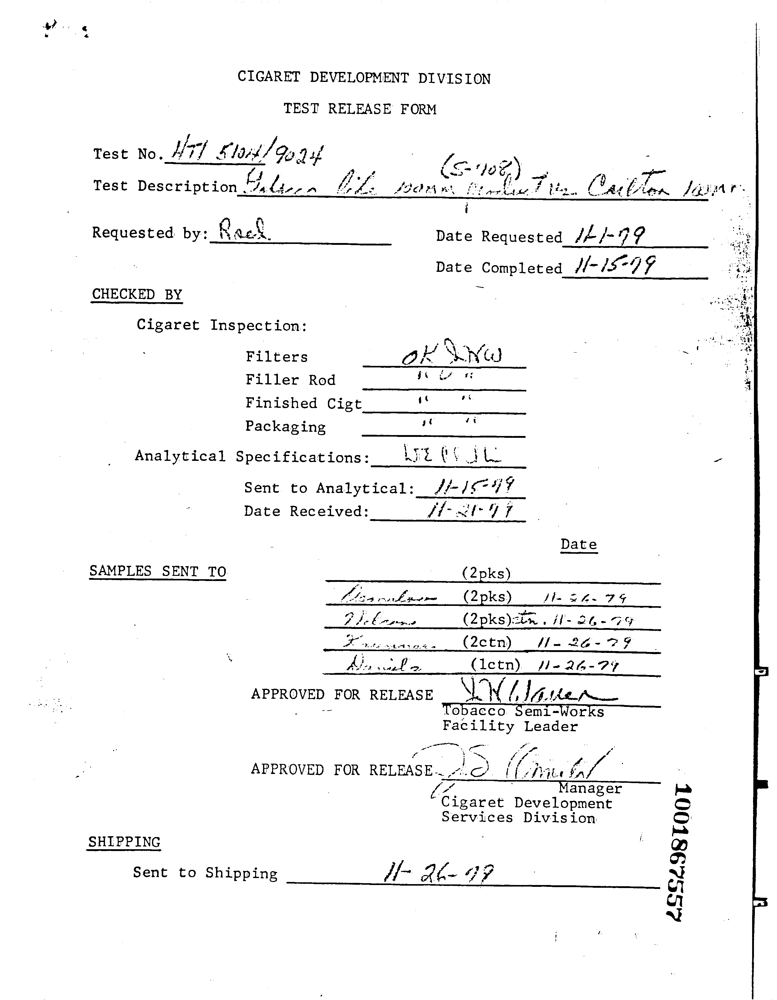 CIGARET DEVELOPMENT DIVISION
TEST RELEASE FORM
Test No. HTI 5104/9024
(S-408)
Test Description like 100mm Product vs. Carlton 100mm
Requested by: Roel
Date Requested 11-1-79
Date Completed 11-15-79
CHECKED BY
Cigaret Inspection:
Filters OK JNW
Filler Rod " "
Finished Cigt " "
Packaging " "
Analytical Specifications:
Sent to Analytical: 11-15-79
Date Received: 11-21-79
Date
SAMPLES SENT TO (2pks)
(2pks) 11-26-79
(2pks) 11-26-79
(2ctn) 11-26-79
Daniels (1ctn) 11-26-79
APPROVED FOR RELEASE
Tobacco Semi-Works
Facility Leader
APPROVED FOR RELEASE
Manager
Cigaret Development
Services Division
SHIPPING
Sent to Shipping 11-26-79
1001867557